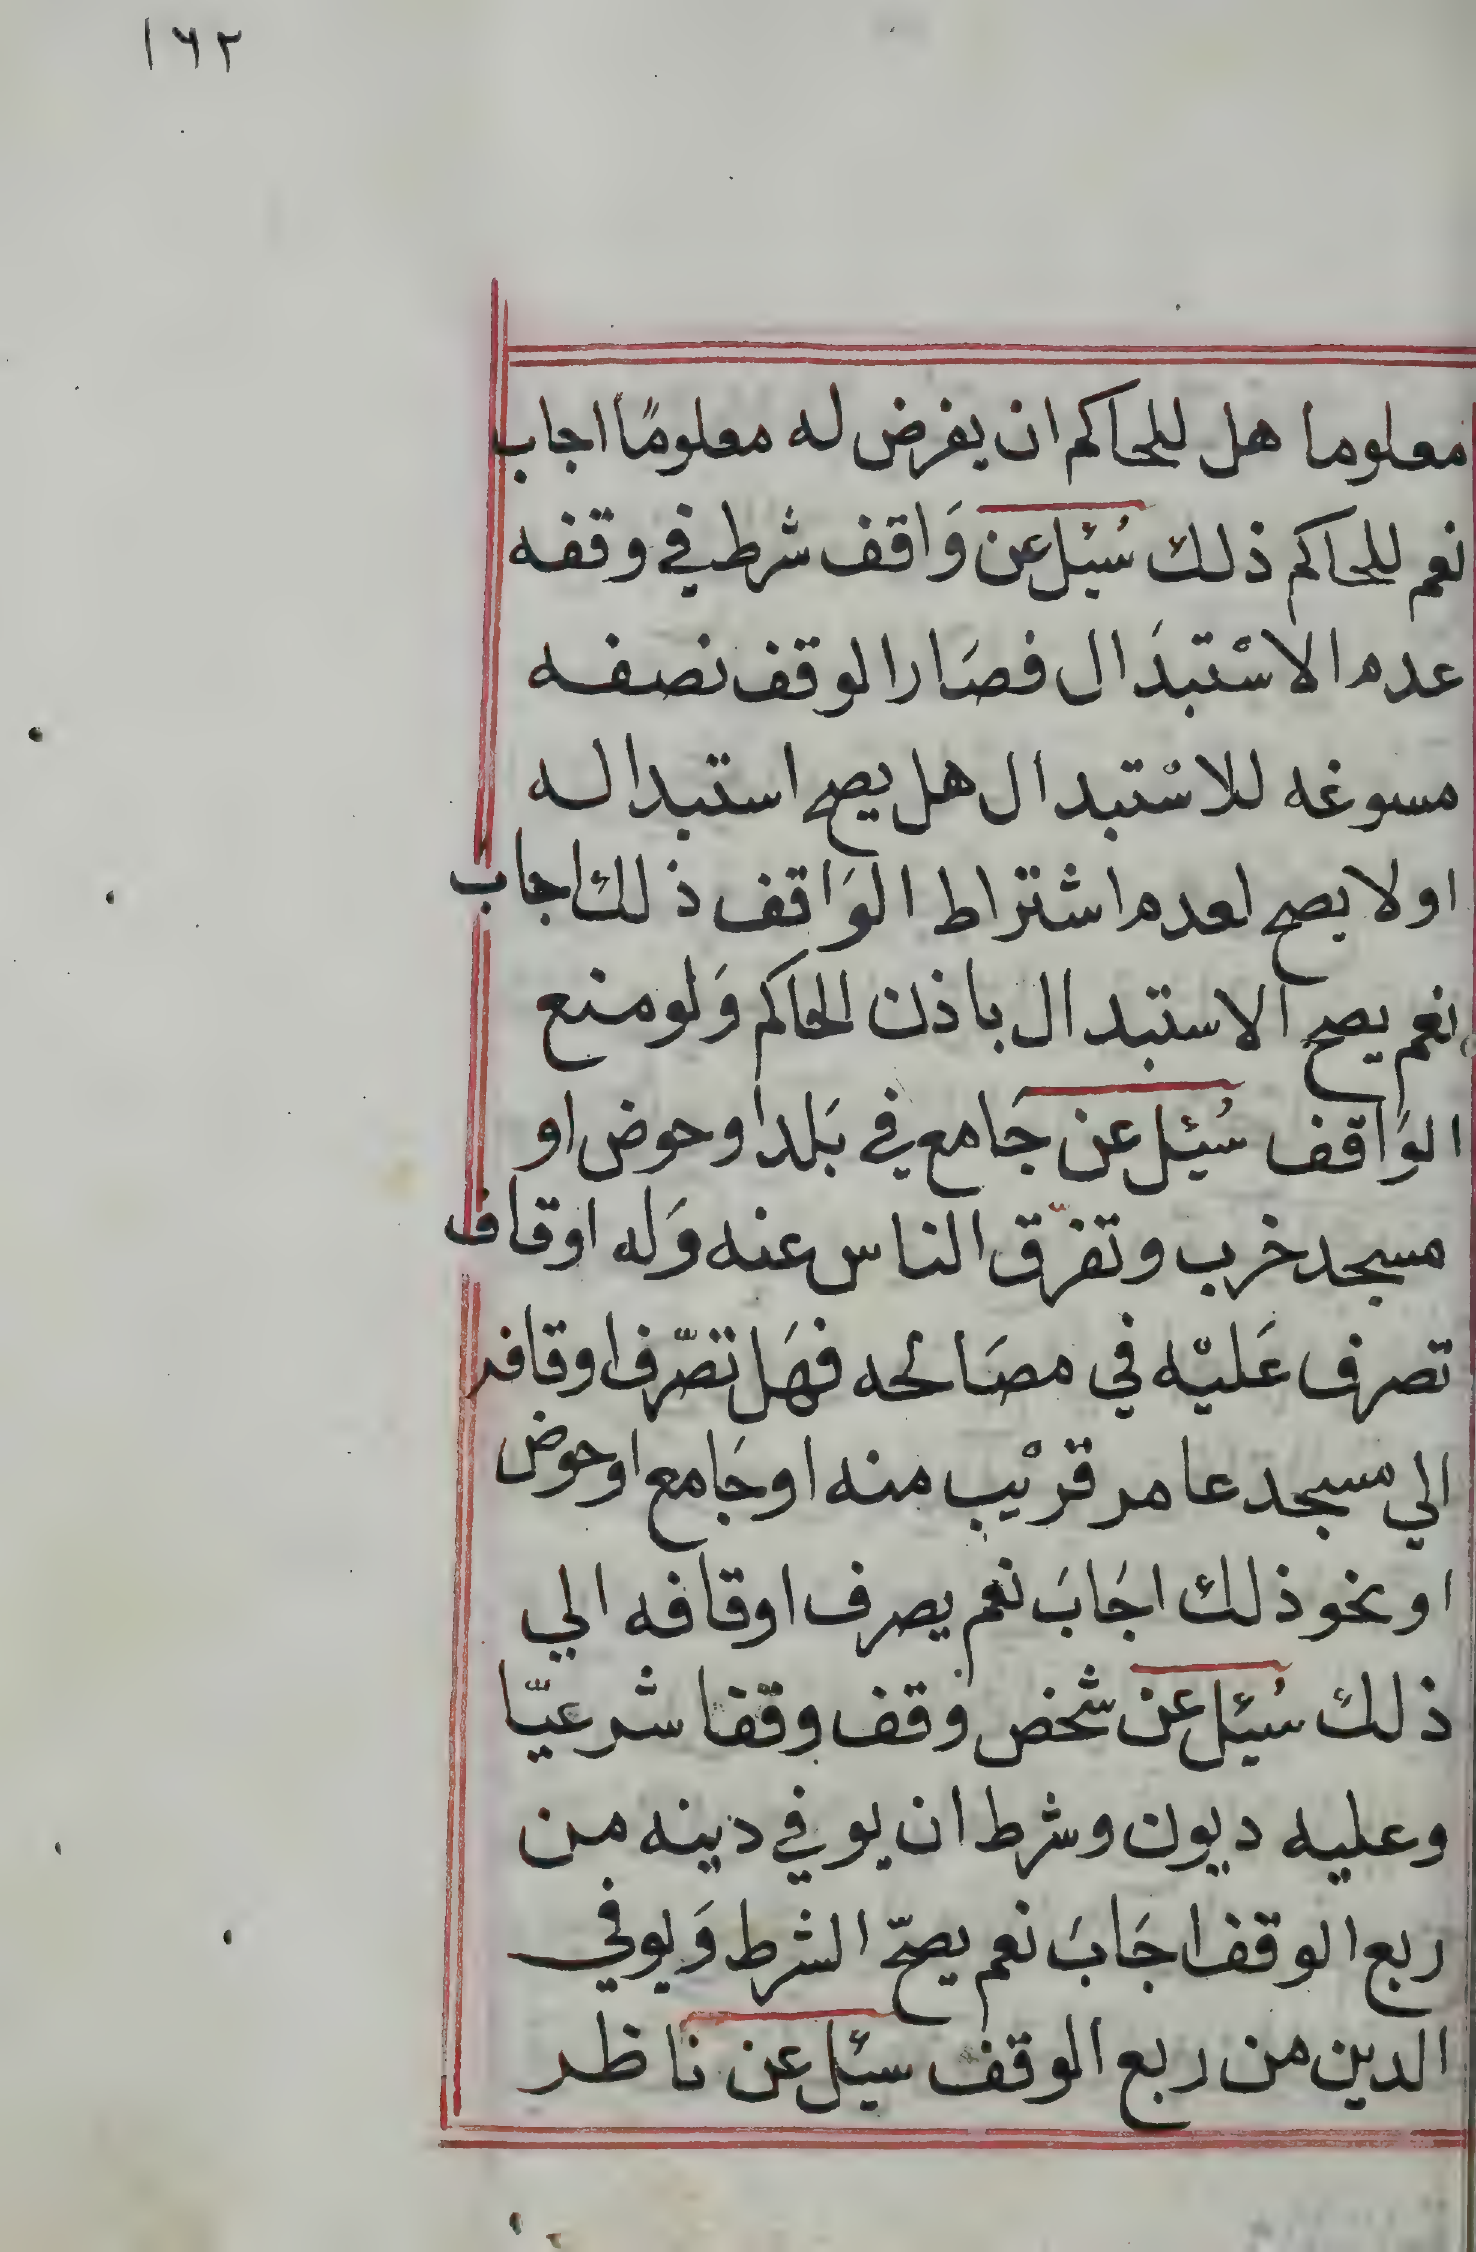 ١٦٢
معلوما هل للحاكم ان يفرض له معلومًا اجاب
نعم للحاكم ذلك سُئل عن وَاقف شرط في وقفه
عدم الاسْتبدَال فصَار الوقف نصفه
مسوغه للاسْتبدال هل يصح استبداله
اولا يصح لعدم اشتراط الوَاقف ذلك اجاب
نعم يصح الاستبدال باذن الحاكم وَلو منع
الوَاقف سُئل عن جَامع في بَلد او حوض او
مسجد خرب وتفرّق الناس عنه وَله اوقاف
تصرف عَليْه في مصَالحه فهَل تصّرف اوقافه
الي مسجد عامر قريْب منه او جَامع او حوض
او نحو ذلك اجَابَ نعم يصرف اوقافه الي
ذلك سُئل عن شخص وقف وقفا شرعيّا
وعليه ديون وشرط ان يوفي دينه من
ريع الوقف اجَابَ نعم يصحّ الشرط وَيوفي
الدين من ريع الوقف سئل عن ناظر